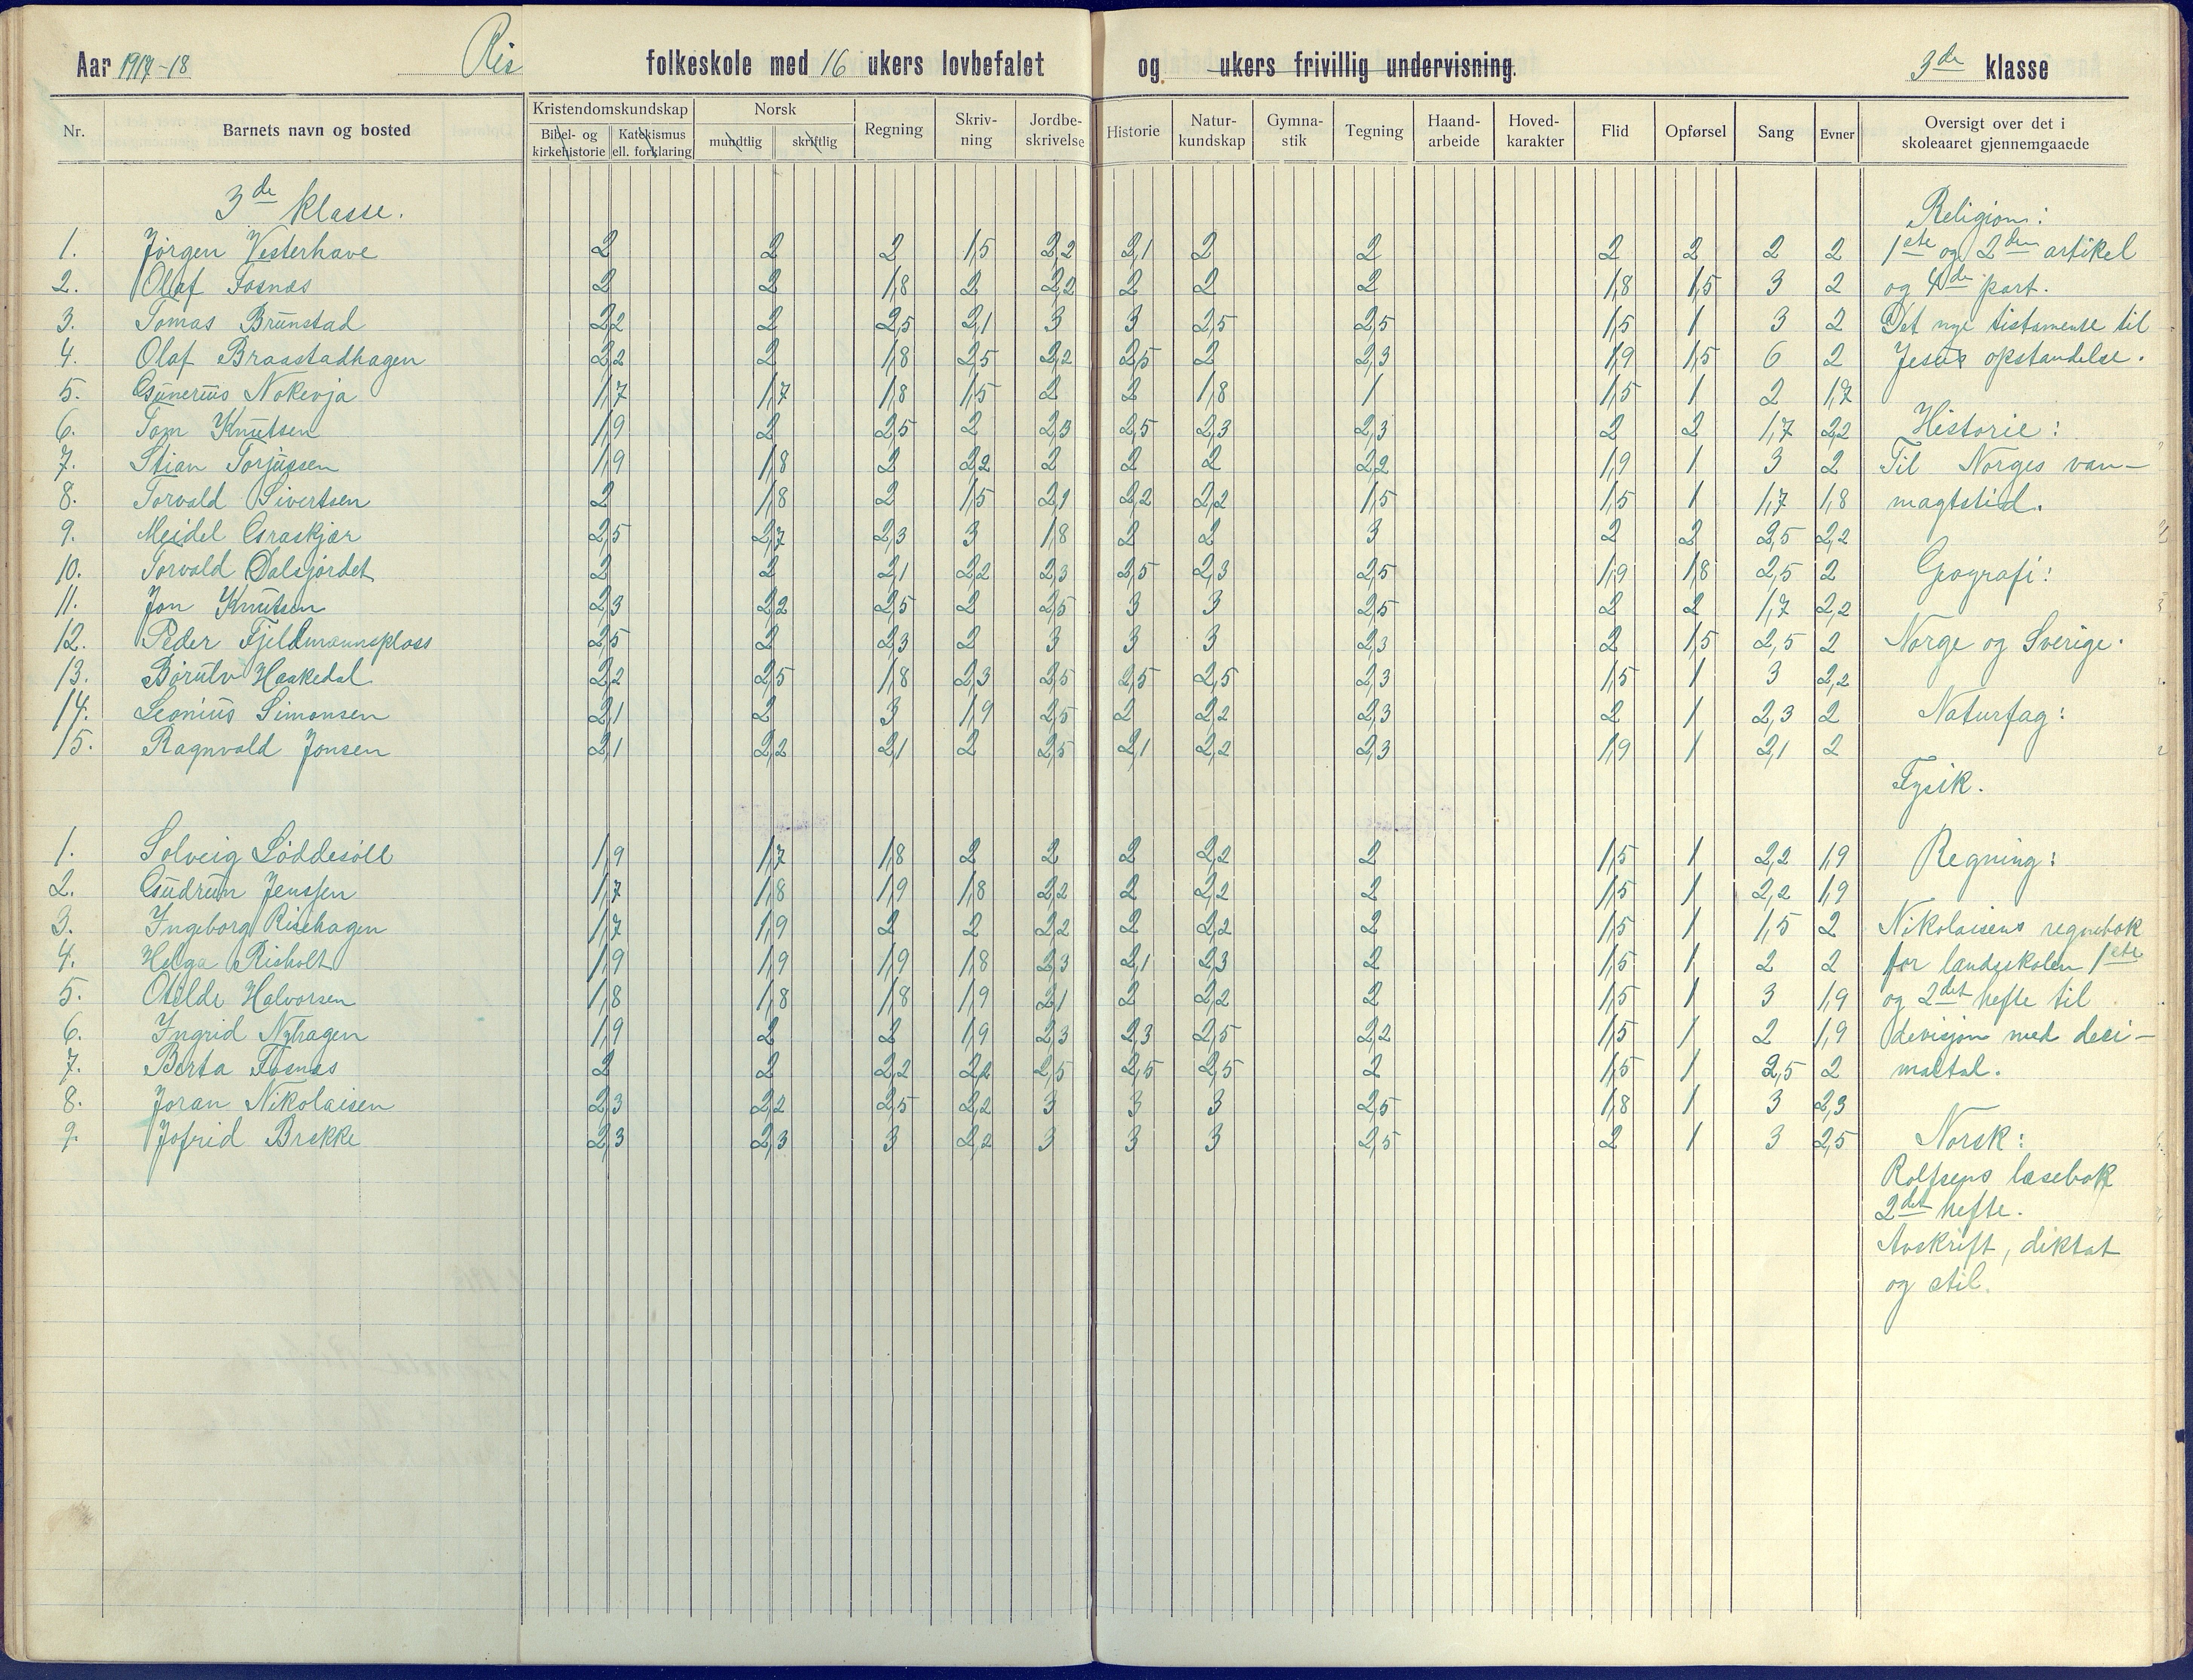 Aar 1917-18 Ris folkeskole med 16 ukers lovbefalet og ukers frivillig undervisning. 3de klasse
Nr. Barnets navn og bosted Kristendomskundskap Bibel- og kirkehistorie Katekismus ell. forklaring Norsk mundtlig skriftlig Regning Skriv-ning Jordbe-skrivelse Historie Natur-kundskap Gymna-stik Tegning Haand-arbeide Hoved-karakter Flid Opførsel Sang Evner Oversigt over det i skoleaaret gjennemgaaede
3de klasse.
Religion:
1. Jørgen Vesterhave 2 2 2 1,5 2,2 2,1 2 2 2 2 2 2 1ste og 2den artikel
2. Olaf Fosnæs 2 2 1,8 2 2,2 2 2 2 1,8 1,5 3 2 og 4de part.
3. Tomas Brunstad 2,2 2 2,5 2,1 3 3 2,5 2,5 1,5 1 3 2 Det nye tistamente til
4. Olaf Braastadhagen 2,2 2 1,8 2,5 2,2 2,5 2 2,3 1,9 1,5 6 2 Jesus opstandelse.
5. Gunerius Nokevja 1,7 1,7 1,8 1,5 2 2 1,8 1 1,5 1 2 1,7
6. Tom Knutsen 1,9 2 2,5 2 2,3 2,5 2,3 2,3 2 2 1,7 2,2 Historie:
7. Stian Torjussen 1,9 1,8 2 2,2 2 2 2 2,2 1,9 1 3 2 Til Norges van-
8. Torvald Sivertsen 2 1,8 2 1,5 2,1 2,2 2,2 1,5 1,5 1 1,7 1,8 magtstid.
9. Meidel Graskjær 2,5 2,7 2,3 3 1,8 2 2 3 2 2 2,5 2,2
10. Torvald Dalsjordet 2 2 2,1 2,2 2,3 2,5 2,3 2,5 1,9 1,8 2,5 2 Geografi:
11. Jon Knutsen 2,3 2,2 2,5 2 2,5 3 3 2,5 2 2 1,7 2,2
12. Peder Fjeldmannsplass 2,5 2 2,3 2 3 3 3 2,3 2 1,5 2,5 2 Norge og Sverige.
13. Børulv Haakedal 2,2 2,5 1,8 2,3 2,5 2,5 2,5 2,3 1,5 1 3 2,2
14. Leonius Simonsen 2,1 2 3 1,9 2,5 2 2,2 2,3 2 1 2,3 2 Naturfag:
15. Ragnvald Jonsen 2,1 2,2 2,1 2 2,5 2,1 2,2 2,3 1,9 1 2,1 2
Fysik.
1. Solveig Løddesøll 1,9 1,7 1,8 2 2 2 2,2 2 1,5 1 2,2 1,9 Regning:
2. Gudrun Jenssen 1,7 1,8 1,9 1,8 2,2 2 2,2 2 1,5 1 2,2 1,9
3. Ingeborg Risehagen 1,7 1,9 2 2 2,2 2 2,2 2 1,5 1 1,5 2 Nikolaisens regnebok
4. Helga Risholt 1,9 1,9 1,9 1,8 2,3 2,1 2,3 2 1,5 1 2 2 for landsskolen 1ste
5. Otilde Halvorsen 1,8 1,8 1,8 1,9 2,1 2 2,2 2 1,5 1 3 1,9 og 2det hefte til
6. Ingrid Nyhagen 1,9 2 2 1,9 2,3 2,3 2,5 2,2 1,5 1 2 1,9 devisjon med desi-
7. Berta Fosnæs 2 2 2,2 2,2 2,5 2,5 2,5 2 1,5 1 2,5 2 maltal.
8. Joran Nikolaisen 2,3 2,2 2,5 2,2 3 3 3 2,5 1,8 1 3 2,3
9. Jofrid Brekke 2,3 2,3 3 2,2 3 3 3 2,5 2 1 3 2,5 Norsk:
Rolfsens læsebok
2det hefte.
Avskrift, diktat
og stil.